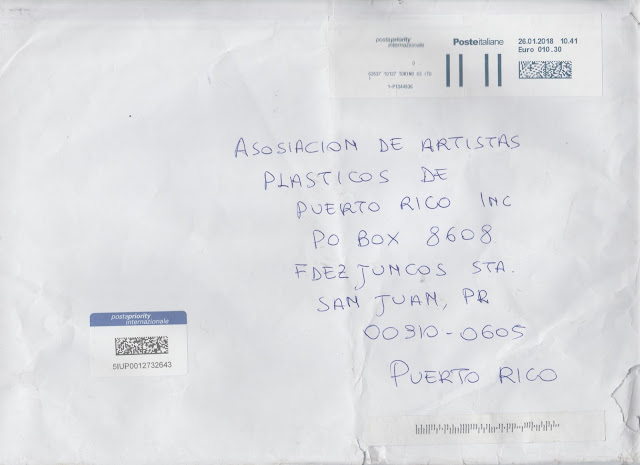 postapriority
internazionale
Posteitaliane
26.01.2018 10.41
Euro 010.30
ASOSIACION DE ARTISTAS
PLASTICOS DE
PUERTO RICO INC
PO BOX 8608
FDEZ JUNCOS STA.
SAN JUAN, PR
00910-0605
PUERTO RICO
postapriority
internazionale
5IUP0012732643